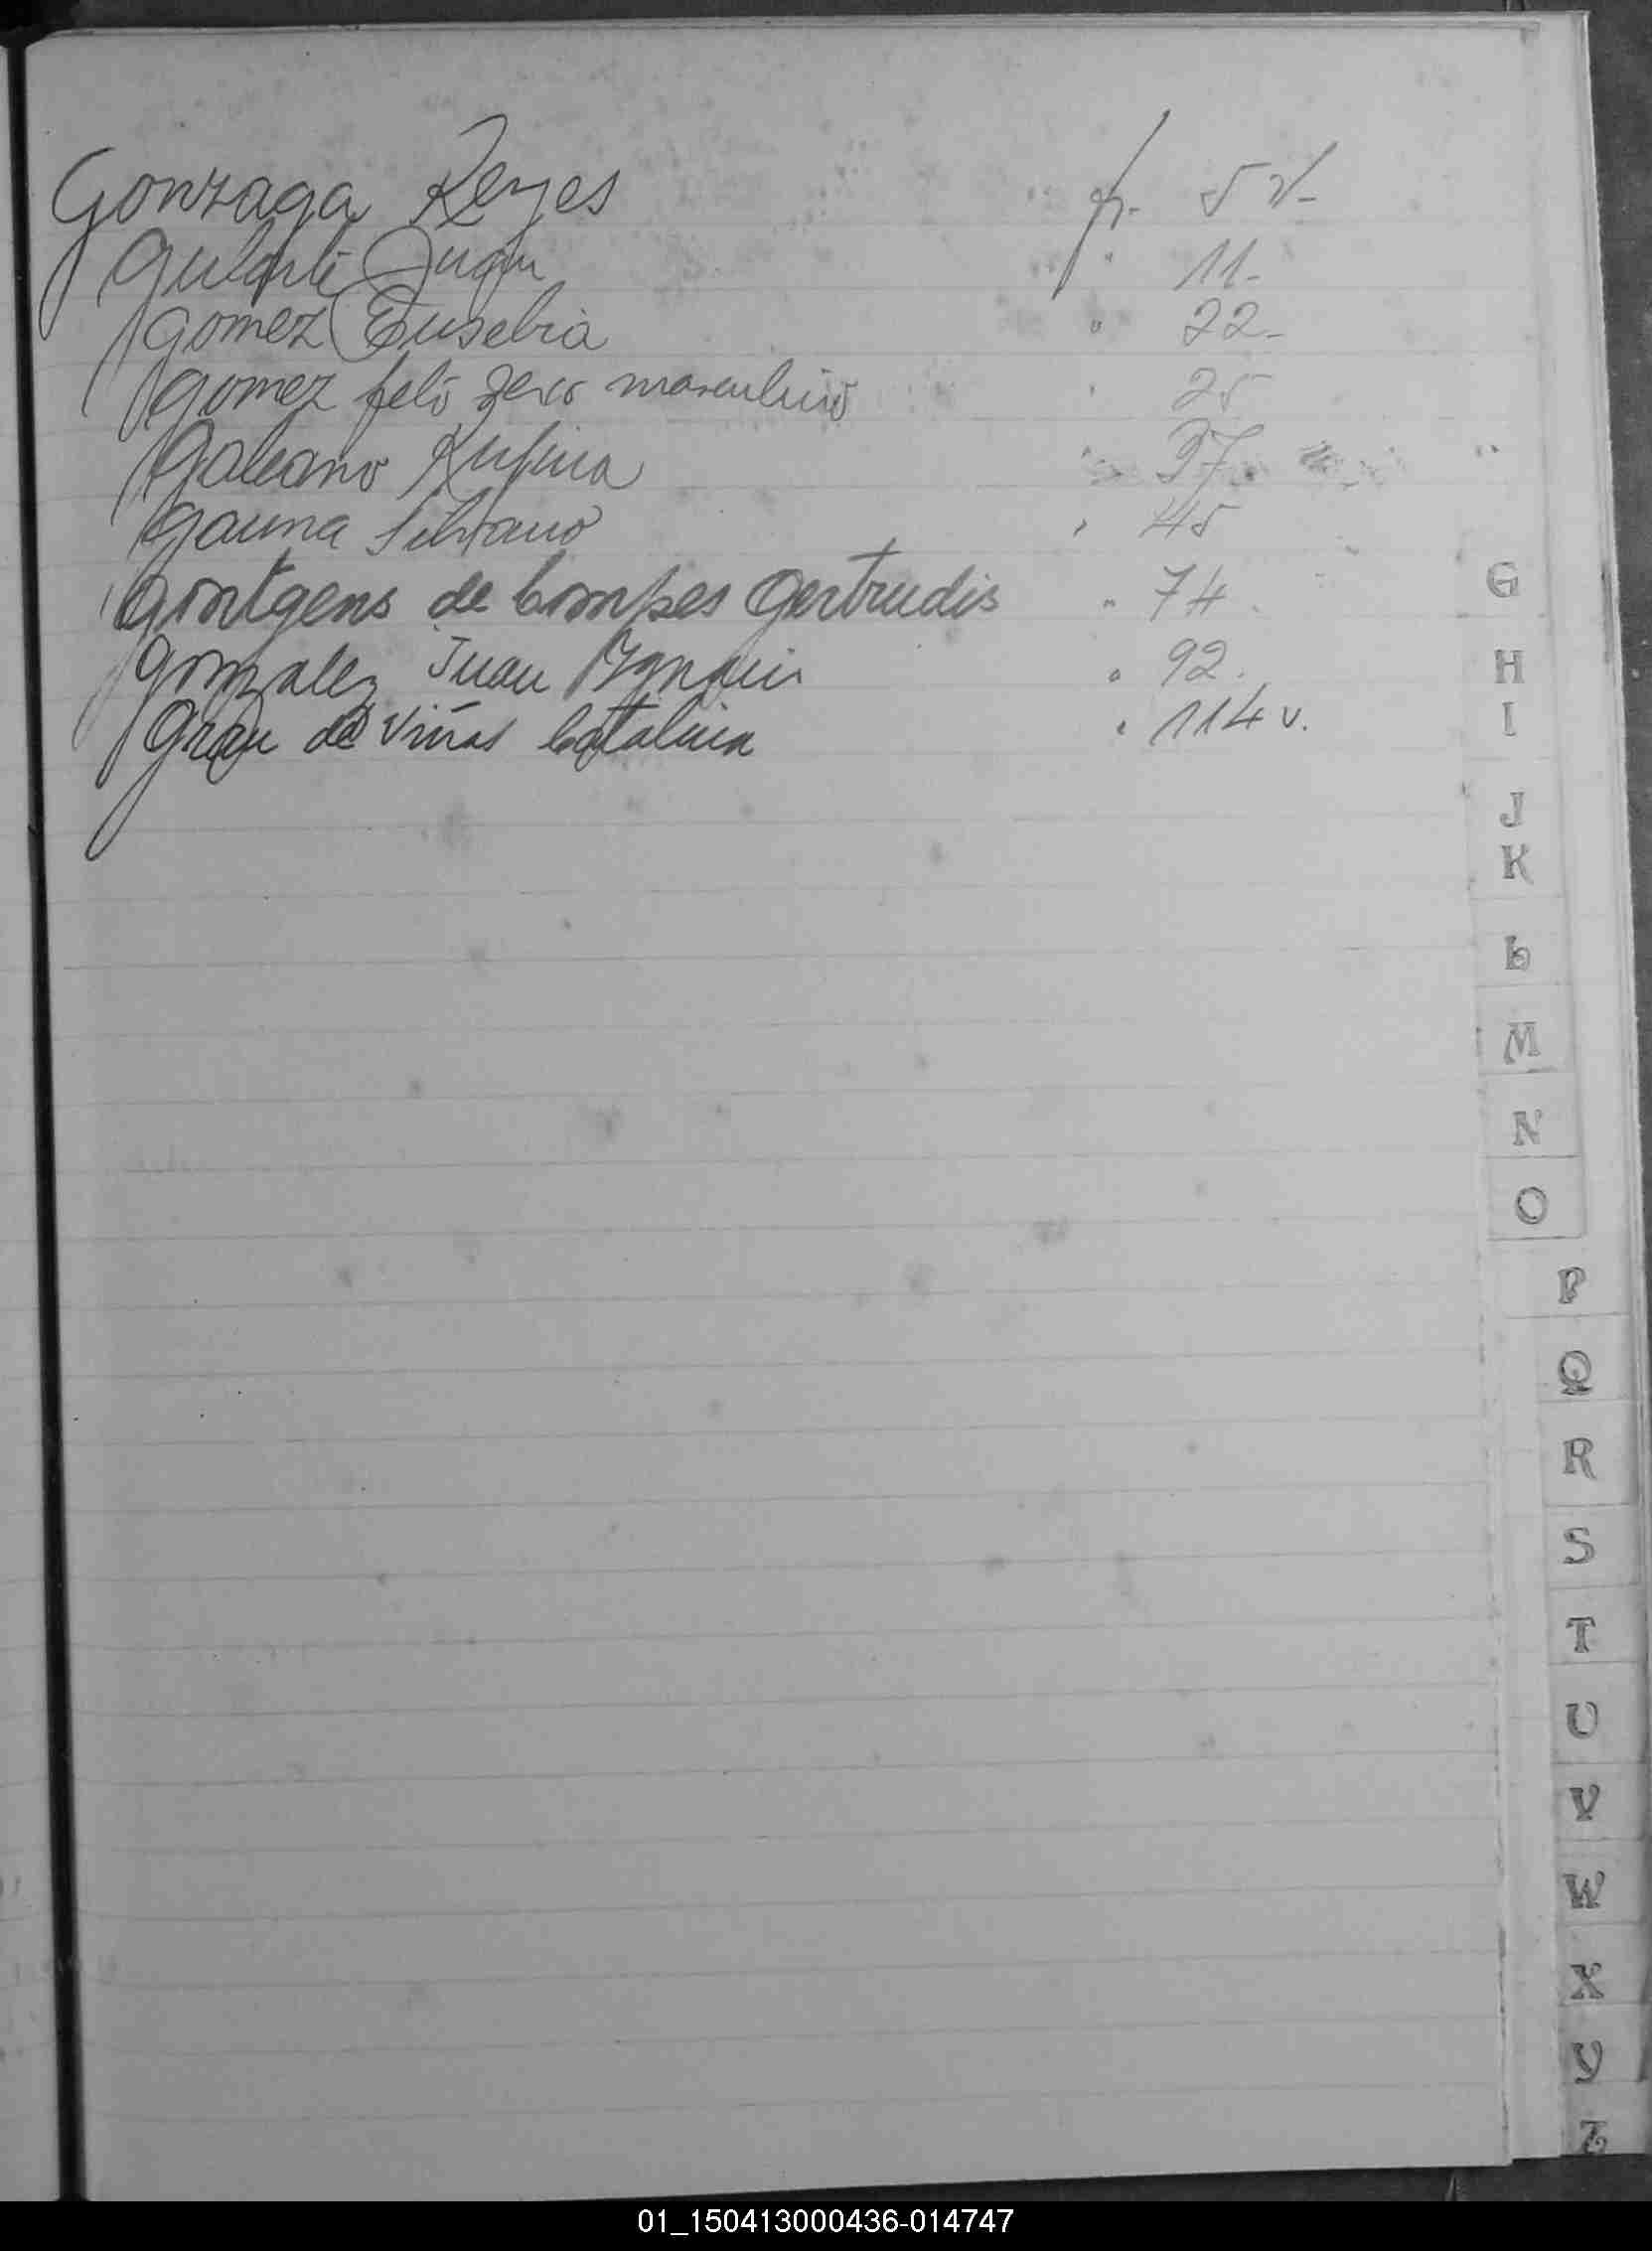 Gonzaga Reyes f. 5 v-
Juan " 11-
Gomez Eusebia " 22-
Gomez feto sexo masculino " 25
Galeano Rufina " 37
Gauna Silvano " 45
Gontgens de Compes Gertrudis " 74
Gonzalez Juan Ygnacio " 92.
Grau de Viñas Catalina " 114 v.
G
H
I
J
K
L
M
N
O
P
Q
R
S
T
U
V
W
X
Y
Z
01_150413000436-014747